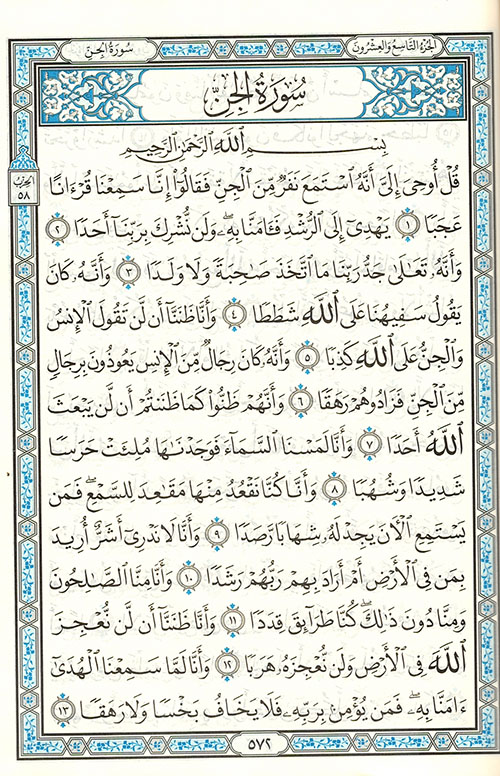 سُورَةُ الجِنِّ
الجُزءُ التَّاسِعُ وَالعِشْرُونَ
سُورَةُ الجِنِّ
بِسْمِ ٱللَّهِ ٱلرَّحْمَٰنِ ٱلرَّحِيمِ
قُلْ أُوحِىَ إِلَىَّ أَنَّهُ ٱسْتَمَعَ نَفَرٌ مِّنَ ٱلْجِنِّ فَقَالُوٓا۟ إِنَّا سَمِعْنَا قُرْءَانًا
عَجَبًا ١ يَهْدِىٓ إِلَى ٱلرُّشْدِ فَـَٔامَنَّا بِهِۦ ۖ وَلَن نُّشْرِكَ بِرَبِّنَآ أَحَدًا ٢
وَأَنَّهُۥ تَعَٰلَىٰ جَدُّ رَبِّنَا مَا ٱتَّخَذَ صَٰحِبَةً وَلَا وَلَدًا ٣ وَأَنَّهُۥ كَانَ
يَقُولُ سَفِيهُنَا عَلَى ٱللَّهِ شَطَطًا ٤ وَأَنَّا ظَنَنَّآ أَن لَّن تَقُولَ ٱلْإِنسُ
وَٱلْجِنُّ عَلَى ٱللَّهِ كَذِبًا ٥ وَأَنَّهُۥ كَانَ رِجَالٌ مِّنَ ٱلْإِنسِ يَعُوذُونَ بِرِجَالٍ
مِّنَ ٱلْجِنِّ فَزَادُوهُمْ رَهَقًا ٦ وَأَنَّهُمْ ظَنُّوا۟ كَمَا ظَنَنتُمْ أَن لَّن يَبْعَثَ
ٱللَّهُ أَحَدًا ٧ وَأَنَّا لَمَسْنَا ٱلسَّمَآءَ فَوَجَدْنَٰهَا مُلِئَتْ حَرَسًا
شَدِيدًا وَشُهُبًا ٨ وَأَنَّا كُنَّا نَقْعُدُ مِنْهَا مَقَٰعِدَ لِلسَّمْعِ ۖ فَمَن
يَسْتَمِعِ ٱلْـَٔانَ يَجِدْ لَهُۥ شِهَابًا رَّصَدًا ٩ وَأَنَّا لَا نَدْرِىٓ أَشَرٌّ أُرِيدَ
بِمَن فِى ٱلْأَرْضِ أَمْ أَرَادَ بِهِمْ رَبُّهُمْ رَشَدًا ١٠ وَأَنَّا مِنَّا ٱلصَّٰلِحُونَ
وَمِنَّا دُونَ ذَٰلِكَ ۖ كُنَّا طَرَآئِقَ قِدَدًا ١١ وَأَنَّا ظَنَنَّآ أَن لَّن نُّعْجِزَ
ٱللَّهَ فِى ٱلْأَرْضِ وَلَن نُّعْجِزَهُۥ هَرَبًا ١٢ وَأَنَّا لَمَّا سَمِعْنَا ٱلْهُدَىٰٓ
ءَامَنَّا بِهِۦ ۖ فَمَن يُؤْمِنۢ بِرَبِّهِۦ فَلَا يَخَافُ بَخْسًا وَلَا رَهَقًا ١٣
الحِزْب
٥٨
٥٧٢